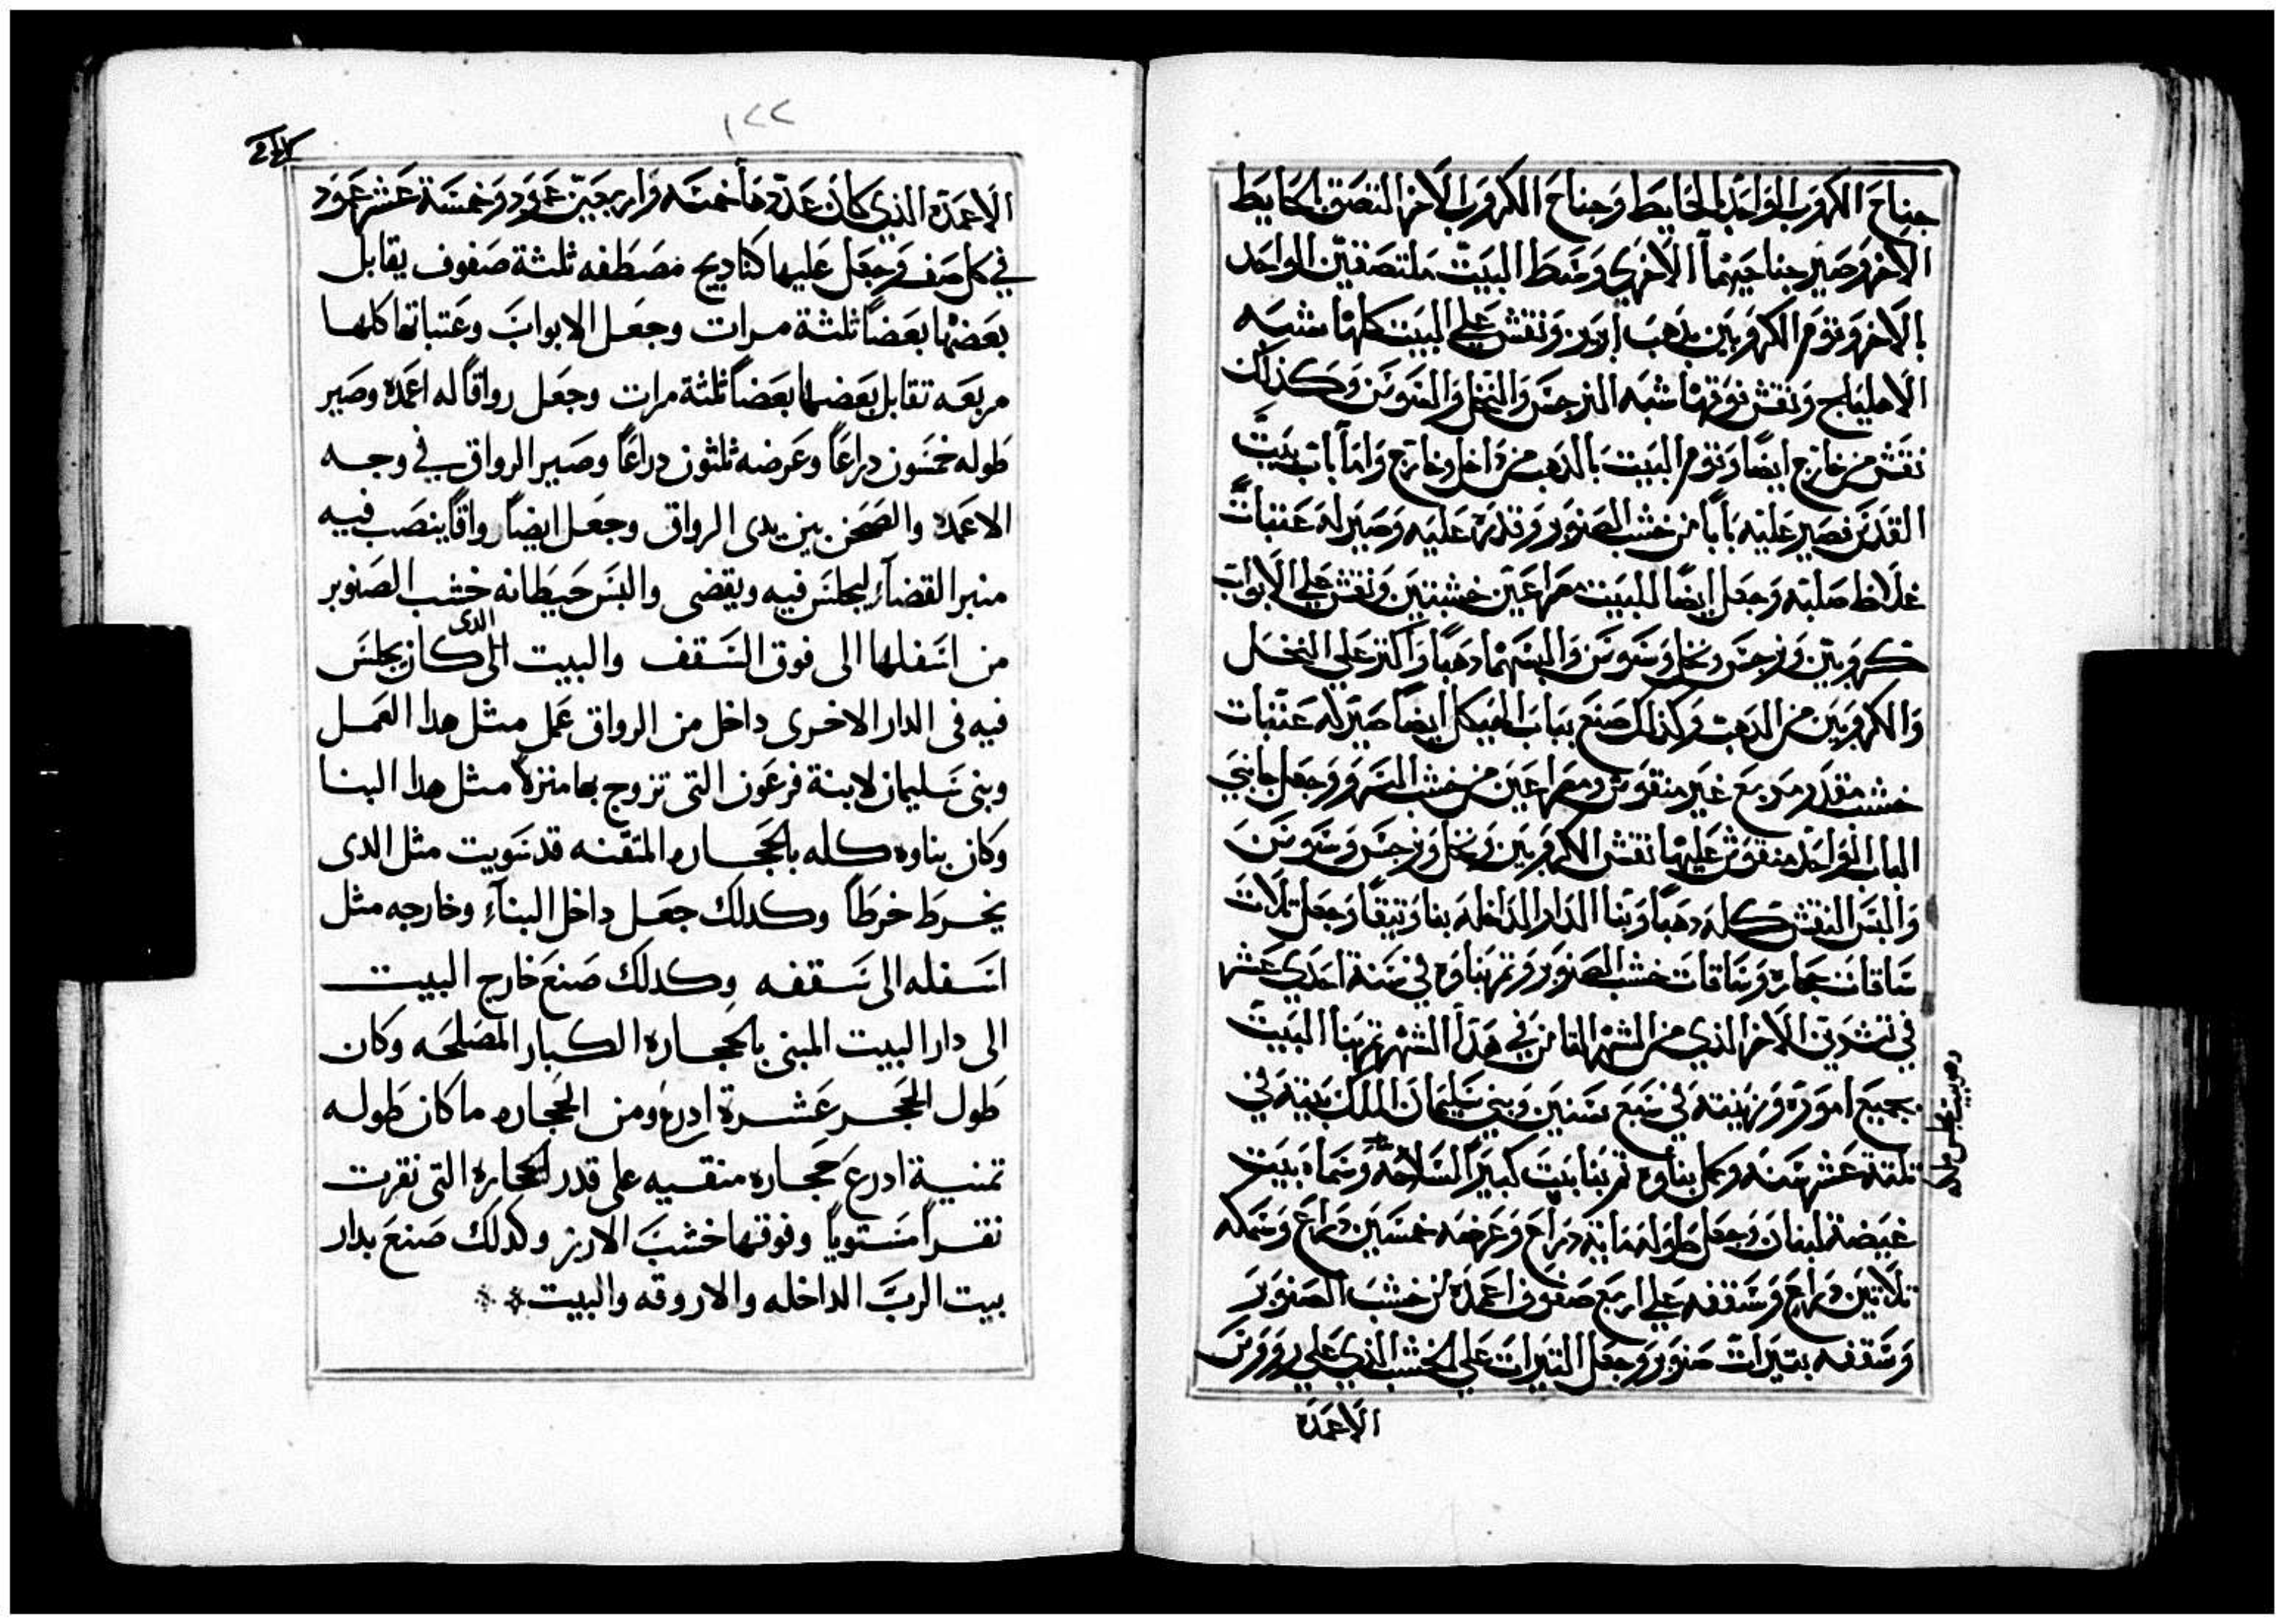 جناح الكروب الواحد بالحايط وجناح الكروب الاخر التصق بالحايط
الاخر وصير جناحيهما الاخري وسط البيت ملتصقين الواحد
بالاخر وتوم الكروبين بدهب ابريز ونقش علي البيت كلها شبه
الاهليلج ونقش فوقها شبه النرجس والنخل والسوسن وكذلك
نقش من خارج ايضا وتوم البيت بالدهب من داخل وخارج واما باب بيت
القدس فصير عليه بابا من خشب الصنوبر وقدره عليه وصير له عتبات
غلاظ صلبه وجعل ايضا للبيت مصراعين خشبتين ونقش علي الابواب
كروبين ونرجس ونخل وسوسن والبسهما دهبا واكتر علي النخل
والكروبين من الدهب وكذلك صنع بباب الهيكل ايضا صير له عتبات
خشب مقدر مربع غير منقوش ومصراعين من خشب السرو وجعل جانبي
الباب الواحد منقوش عليها نقش الكروبين ونخل ونرجس وسوسن
والبس النقش كله دهبا وبنا الدار الداخله بنا وتيقا وجعل تلات
ساقات حجاره وساقات خشب الصنوبر وتم بناوه في سنة احدي عشر
في تشرين الاخر الذي من الشهر التامن في هذا الشهر تم بنا البيت
بجميع اموره وزينته في سبع سنين وبني سليمان الملك بيته في
تلتة عشر سنه وكمل بناوه تم بنا بيت كبير السلاحه وسماه بيت
غيضة لبنان وجعل طوله ماية دراع وعرضه خمسين دراع وسمكه
تلاتين دراع وسقفه علي اربع صفوف اعمده من خشب الصنوبر
وسقفه بتيرات صنوبر وجعل التيرات علي الخشب الذي علي روروس
الاعمده
١٢٢
الاعمده الذي كان عددها خمسه واربعين عمود وخمسة عشر عمود
في كل صف وجعل عليها كناديج مصطفه ثلثة صفوف يقابل
بعضها بعضا ثلثة مرات وجعل الابواب وعتباتها كلها
مربعه تقابل بعضها بعضا ثلثة مرات وجعل رواقا له اعمده وصير
طوله خمسون دراعا وعرضه ثلثون دراعا وصير الرواق في وجه
الاعمده والصحن بين يدى الرواق وجعل ايضا رواقا ينصب فيه
منبر القضاء ليجلس فيه ويقضى والبس حيطانه خشب الصنوبر
من اسفلها الى فوق السقف والبيت الدى كان يجلس
فيه فى الدار الاخرى داخل من الرواق عمل مثل هدا العمل
وبنى سليمان لابنة فرعون التى تزوج بها منزلا مثل هدا البنا
وكان بناوه كله بالحجاره المتقنه قد سويت مثل الدى
يخرط خرطا وكدلك جعل داخل البناء وخارجه مثل
اسفله الى سقفه وكدلك صنع خارج البيت
الى دار البيت المبنى بالحجاره الكبار المصلحه وكان
طول الحجر عشرة ادرع ومن الحجاره ما كان طوله
تمنية ادرع حجاره منقيه على قدر الحجارة التى نقرت
نقرا مستويا وفوقها خشب الارز وكدلك صنع بدار
بيت الرب الداخله والاروقه والبيت